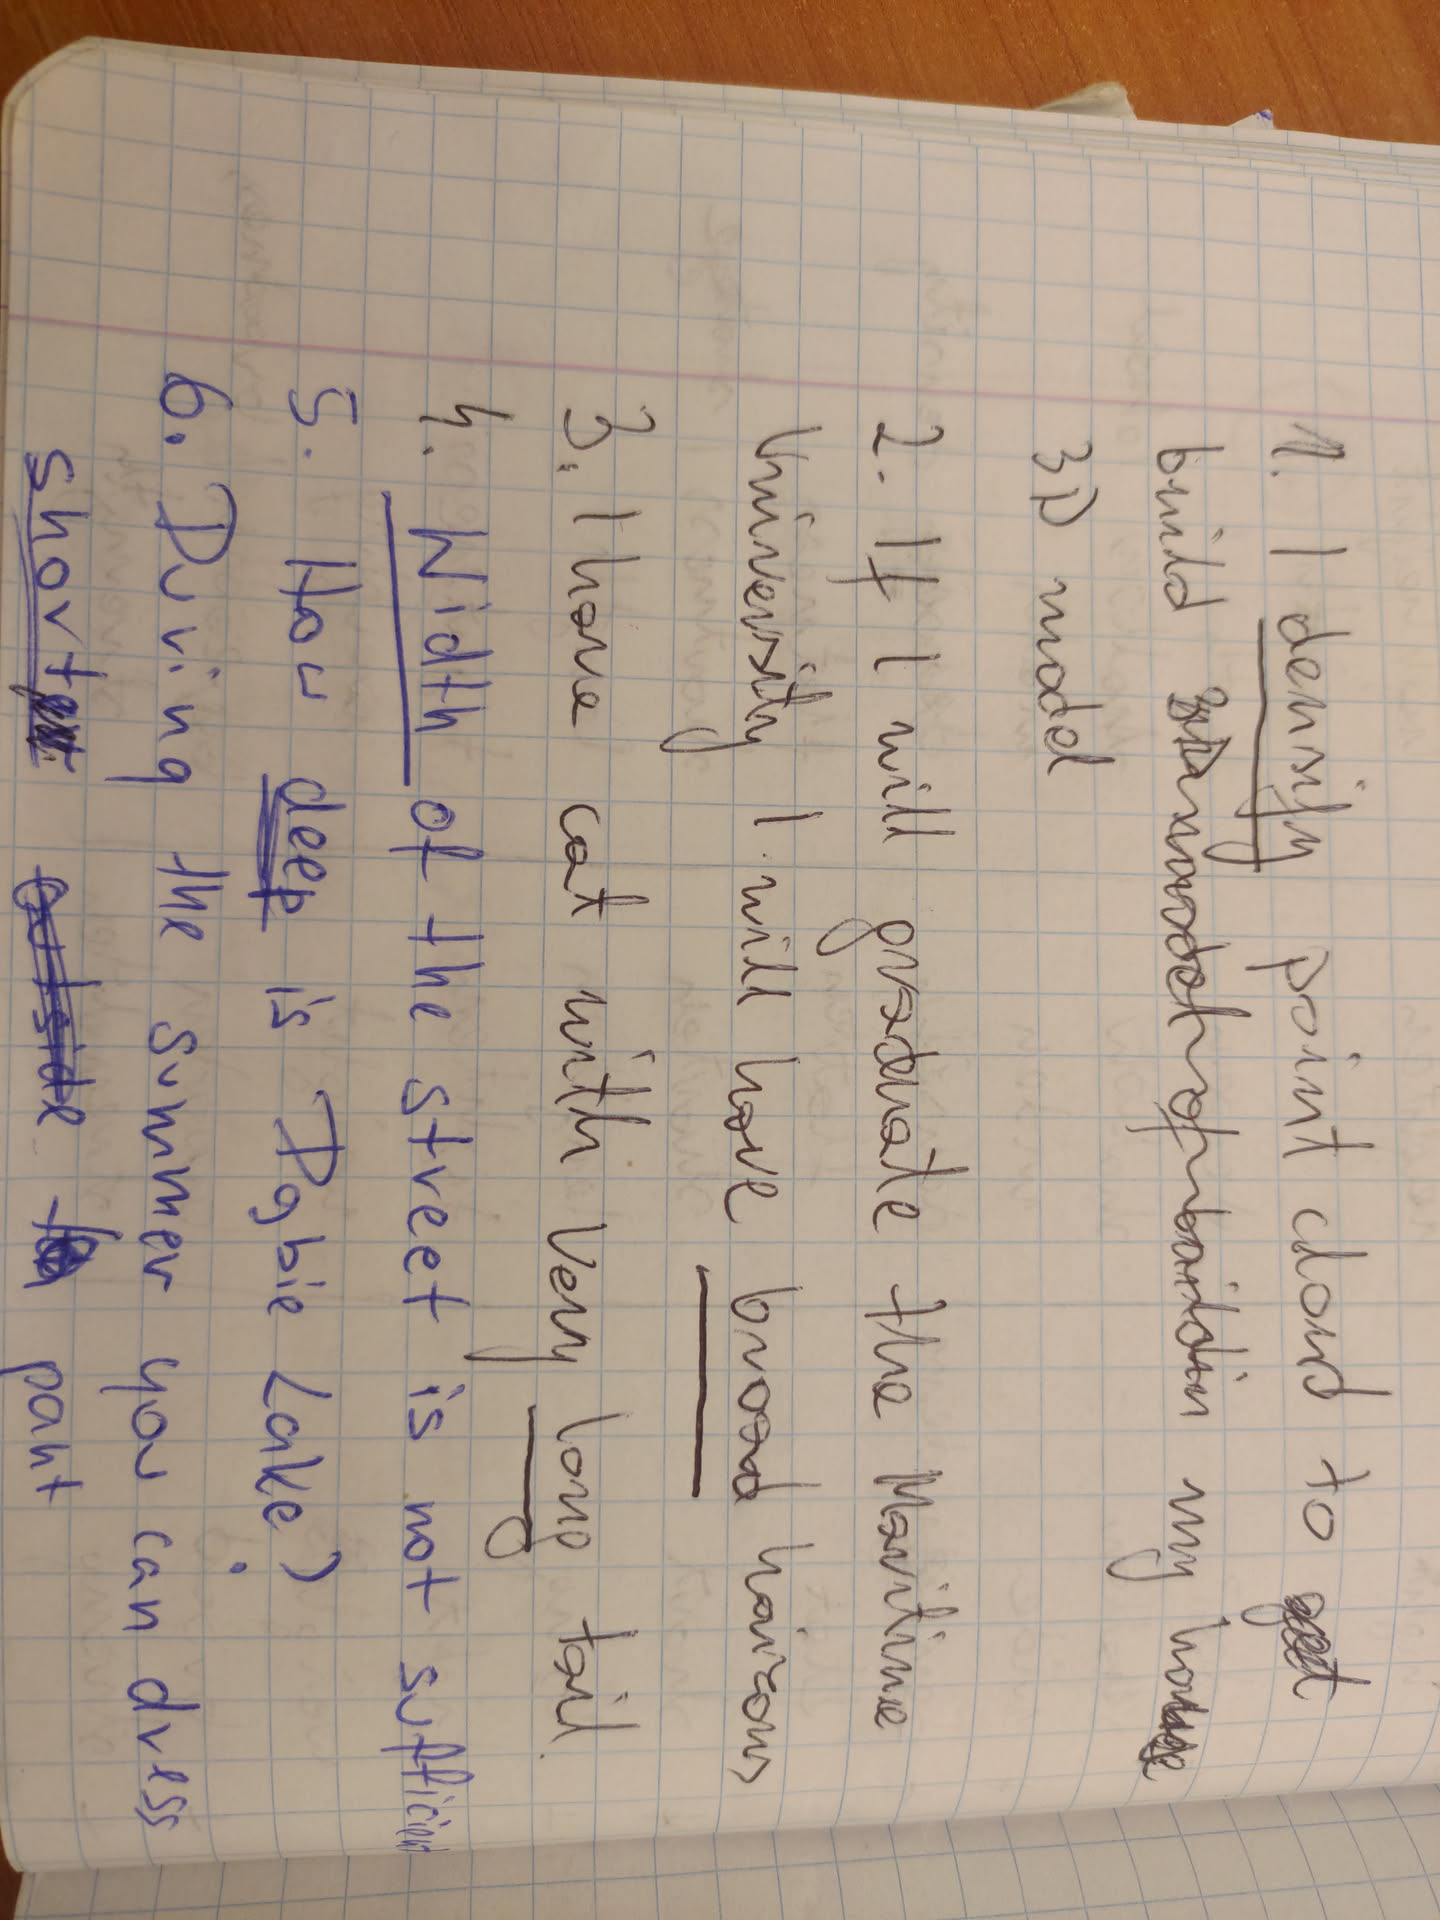 1. I densify point cloud to get
build my house
3D model
2. If I will graduate the Maritime
University I will have broad horizons
3. I have cat with very long tail.
4. Width of the street is not sufficient
5. How deep is Dąbie Lake?
6. During the summer you can dress
short pant